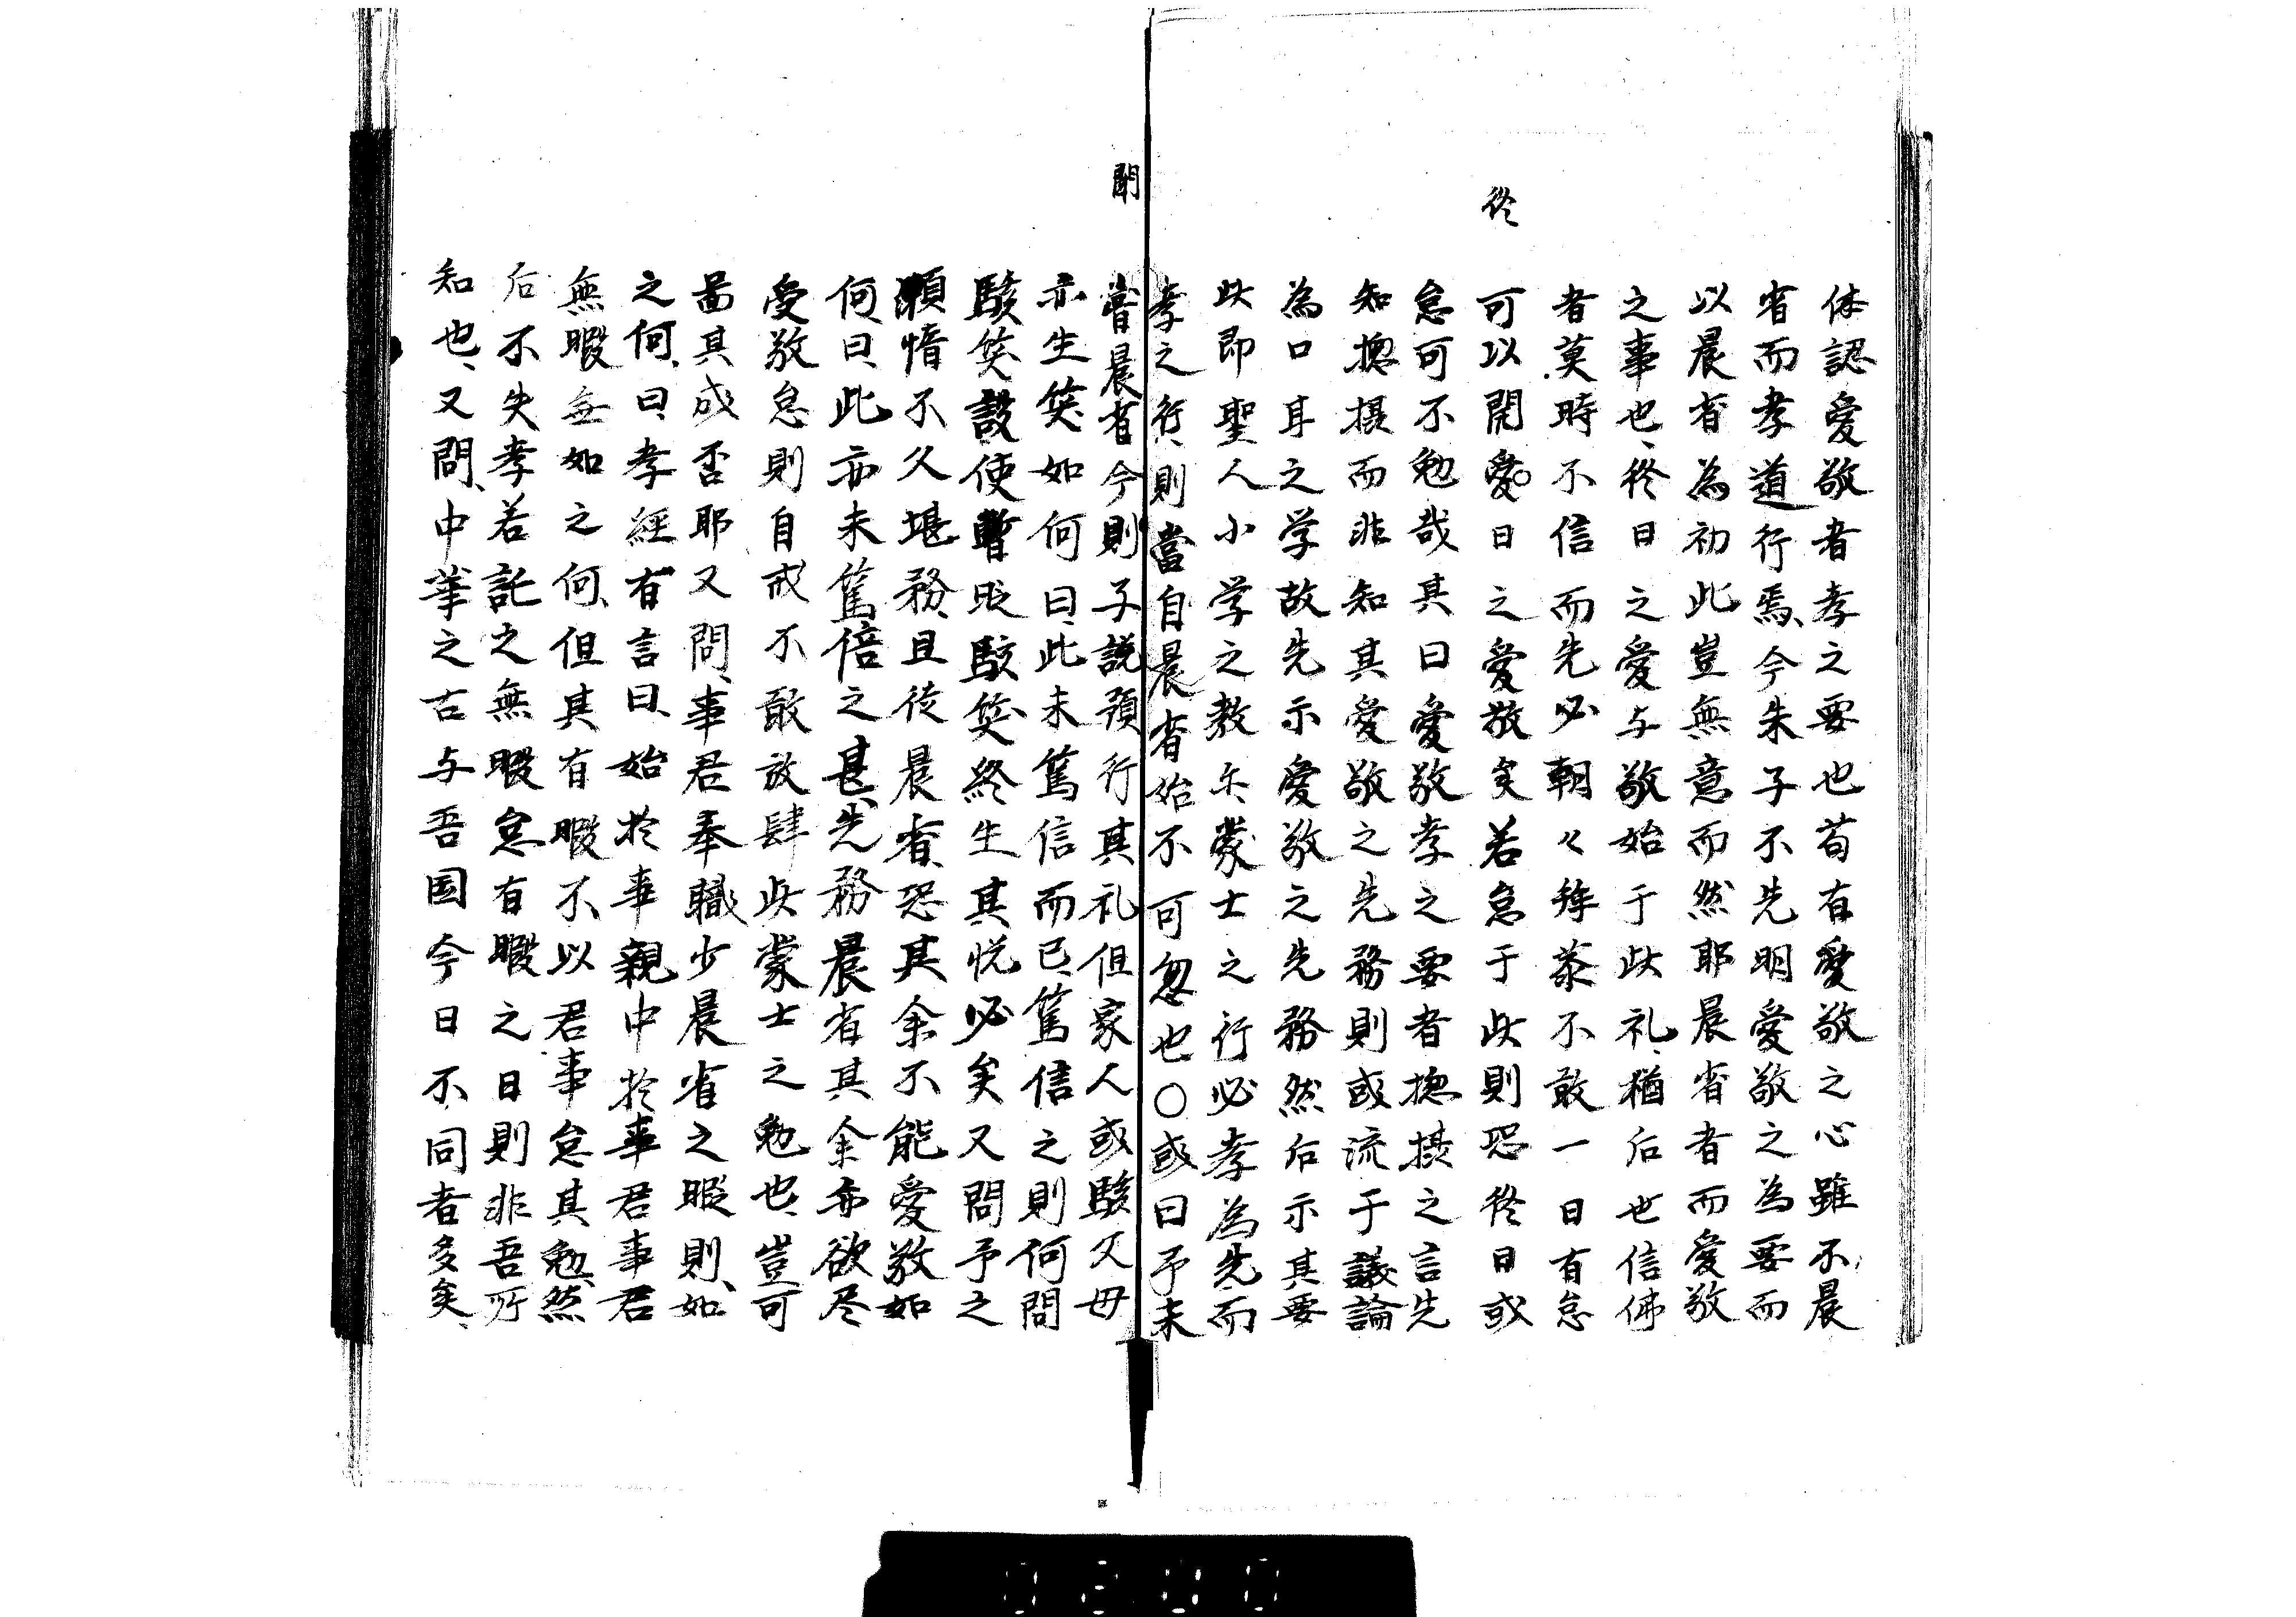 体認愛敬者孝之要也苟有愛敬之心雖不晨
省而孝道行焉今朱子不先明愛敬之為要而
以晨省為初此豈無意而然耶晨省者而愛敬
之事也終日之愛与敬始于此礼猶后也信佛
者莫時不信而先必朝々拝茶不敢一日有怠
終
可以開愛日之愛敬矣若怠于此則恐終日或
怠可不勉哉其曰愛敬孝之要者揔摂之言先
知揔摂而非知其愛敬之先務則或流于議論
為口耳之学故先示愛敬之先務然后示其要
此即聖人小学之教乐蒙士之行必孝為先而
孝之行則當自晨省始不可忽也○或曰予未
聞
嘗晨省今則子説預行其礼但家人或駭父母
亦生笑如何曰此未篤信而已篤信之則何問
駭笑設使暫时駭笑終生其悦必矣又問予之
頼惰不久堪務且徒晨省恐其余不能愛敬如
何曰此亦未篤倍之甚先務晨省其余亦欲尽
愛敬怠則自戒不敢放肆此蒙士之勉也豈可
啚其成否耶又問事君奉職少晨省之暇則如
之何曰孝経有言曰始於事親中於事君事君
無暇無如之何但其有暇不以君事怠其勉然
后不失孝若託之無暇怠有暇之日則非吾所
知也又問中華之古与吾国今日不同者多矣